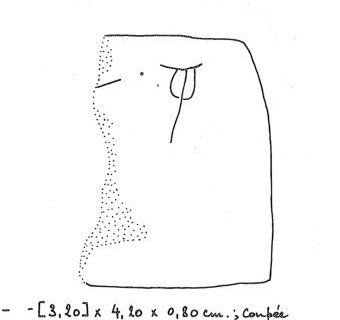 – -[3,20] x 4,20 x 0,80 cm. ; Coupée